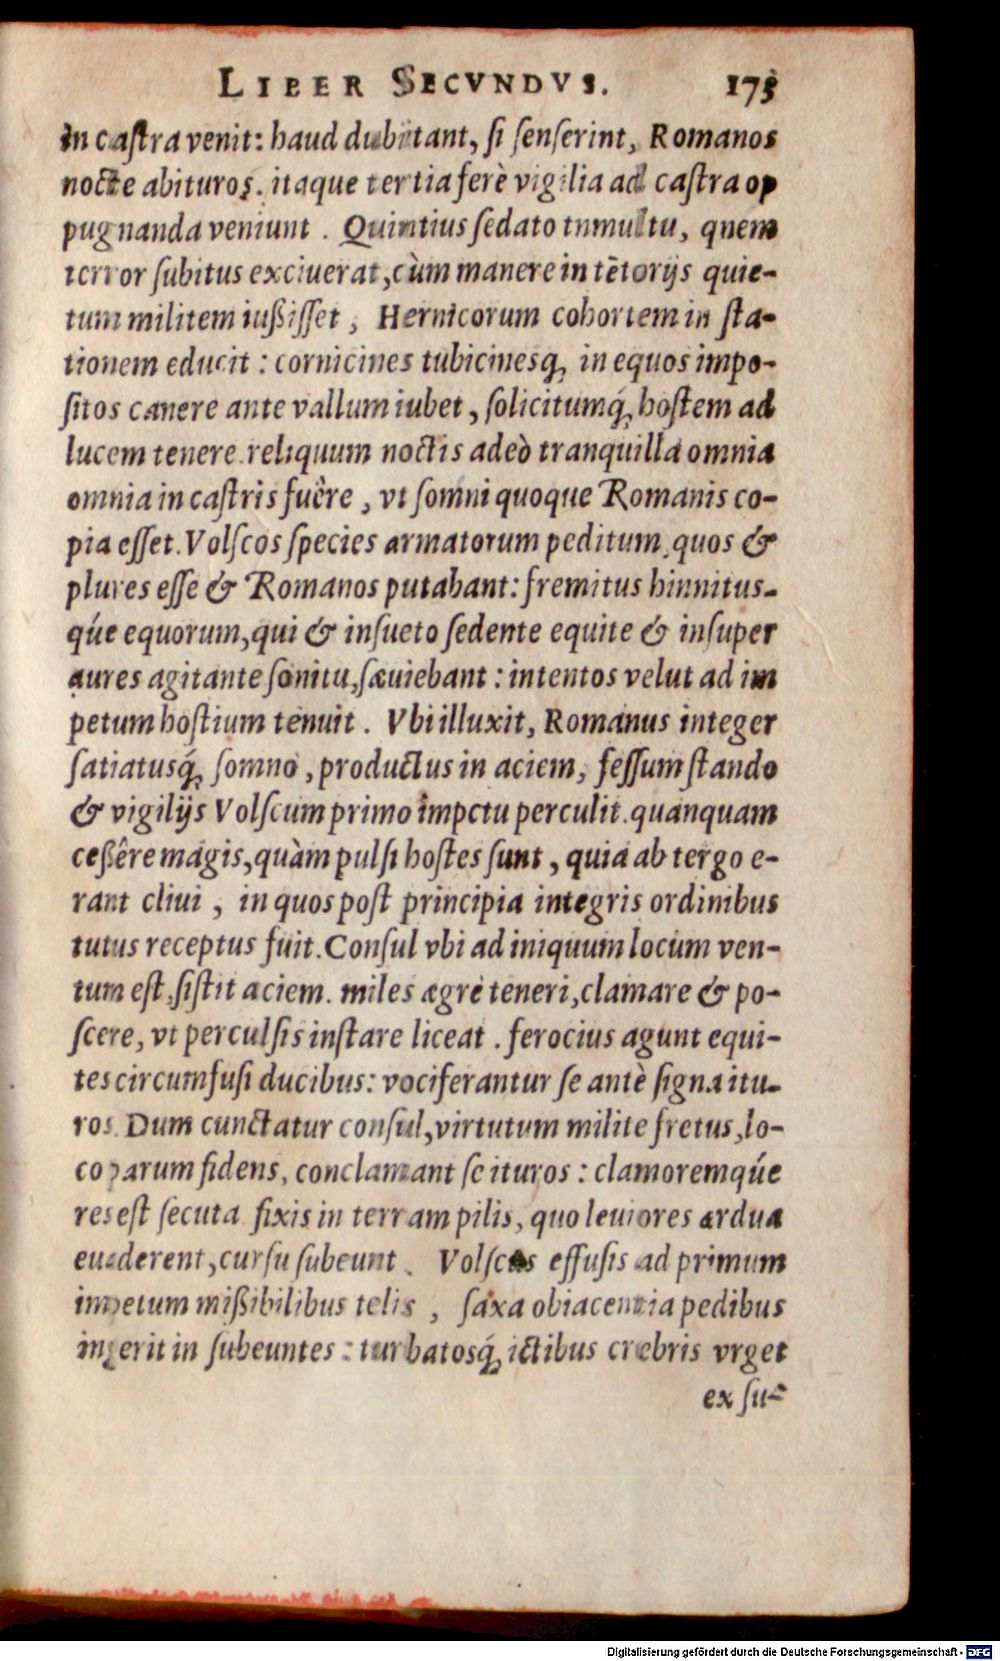 LIBER SECVNDVS. 175
in castra venit: haud dubitant, si senserint, Romanos
nocte abituros. itaque tertia ferè vigilia ad castra op
pugnanda veniunt . Quintius sedato tnmultu, qnem
terror subitus exciuerat, cùm manere in tētorijs quie-
tum militem iußisset , Hernicorum cohortem in sta-
tionem educit : cornicines tubicinesq́; in equos impo-
sitos canere ante vallum iubet , solicitumq́; hostem ad
lucem tenere. reliquum noctis adeò tranquilla omnia
omnia in castris fuêre , vt somni quoque Romanis co-
pia esset. Volscos species armatorum peditum, quos &
plures esse & Romanos putabant: fremitus hinnitus-
q́ue equorum, qui & insueto sedente equite & insuper
aures agitante sonitu, sæuiebant : intentos velut ad im
petum hostium tenuit . Vbi illuxit, Romanus integer
satiatusq́; somno , productus in aciem, fessum stando
& vigilijs Volscum primo impctu perculit. quanquam
ceßêre magis, quàm pulsi hostes sunt , quia ab tergo e-
rant cliui , in quos post principia integris ordinibus
tutus receptus fuit. Consul vbi ad iniquum locum ven-
tum est, sistit aciem. miles ægrè teneri, clamare & po-
scere, vt perculsis instare liceat . ferocius agunt equi-
tes circumfusi ducibus: vociferantur se antè signa itu-
ros. Dum cunctatur consul, virtutum milite fretus, lo-
co parum fidens, conclamant se ituros : clamoremq́ue
res est secuta. fixis in terram pilis, quo leuiores ardua
euaderent, cursu subeunt . Volscus effusis ad primum
impetum mißibilibus telis , saxa obiacentia pedibus
ingerit in subeuntes : turbatosq́; ictibus crebris vrget
ex su-
Digitalisierung gefördert durch die Deutsche Forschungsgemeinschaft - DFG